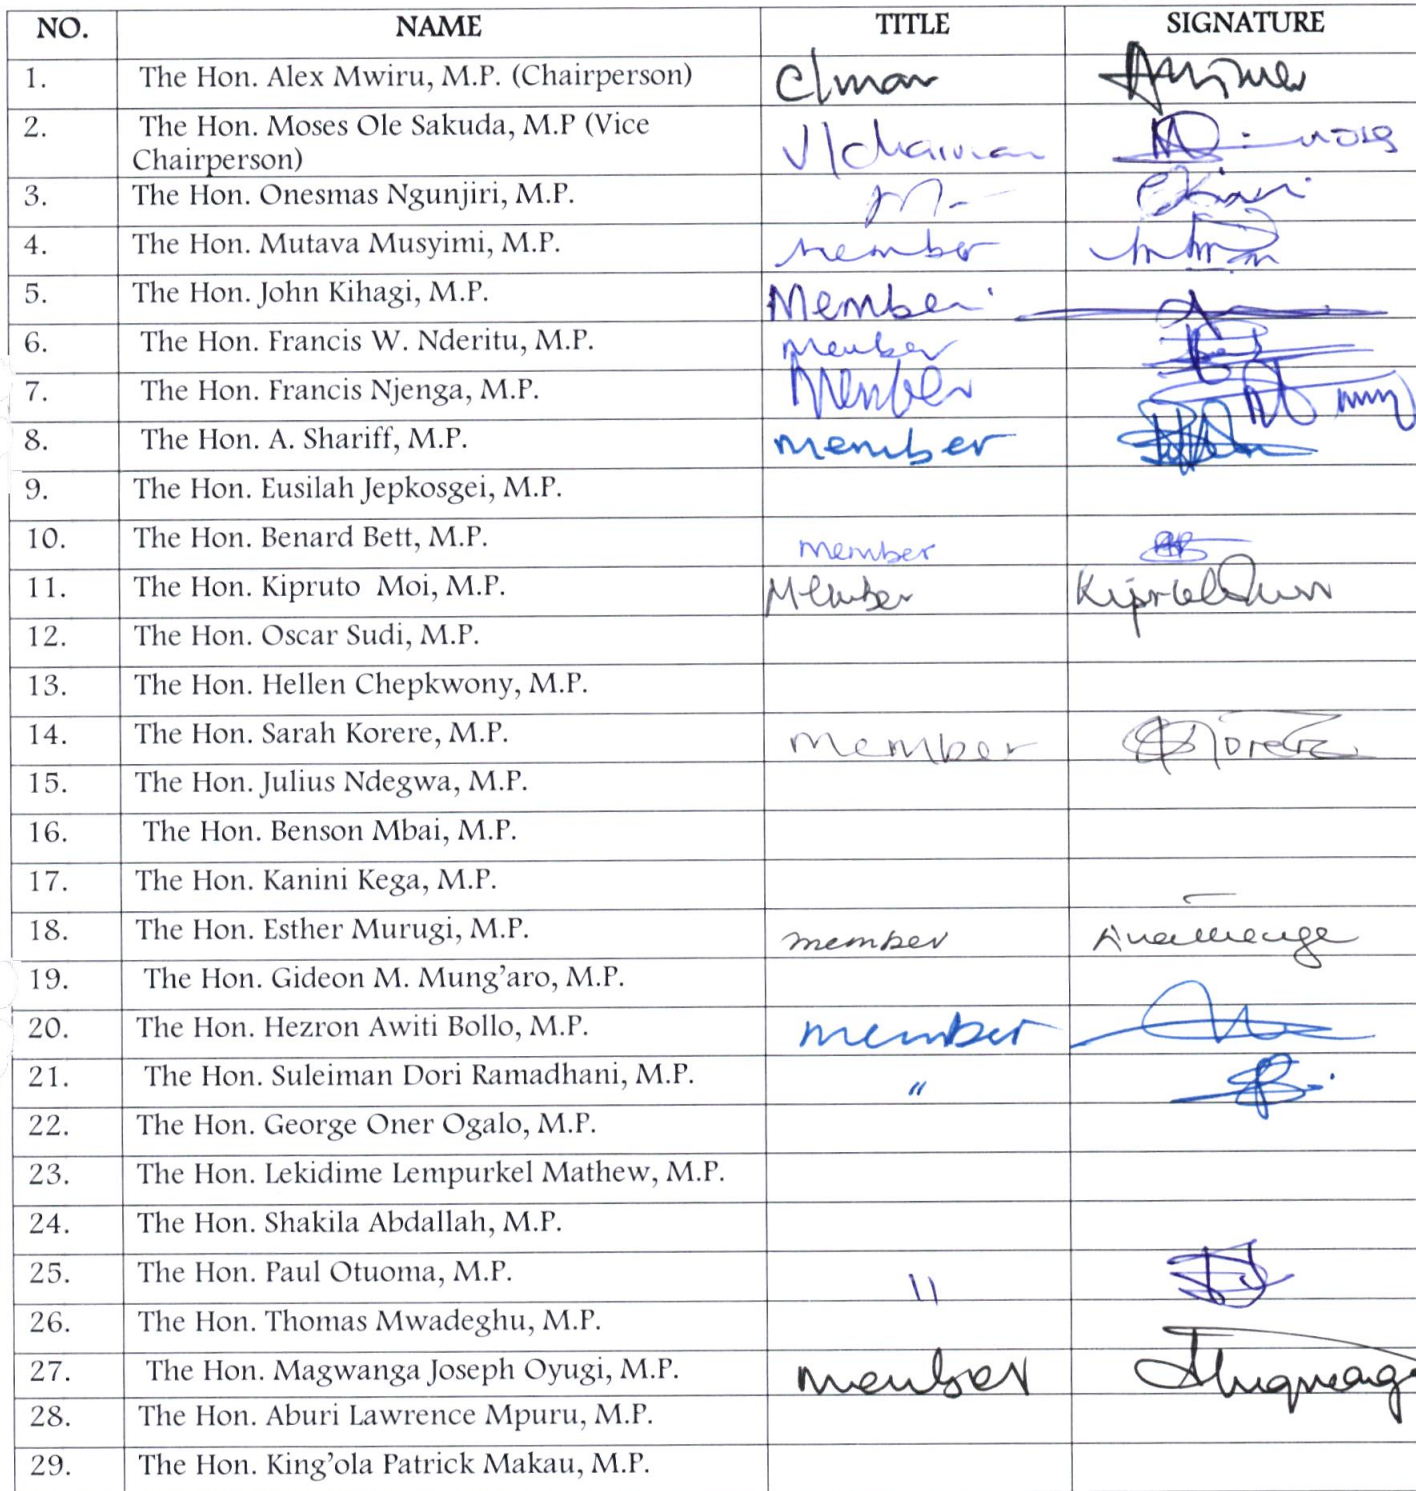 NO. NAME TITLE SIGNATURE
1. The Hon. Alex Mwiru, M.P. (Chairperson) C/man
2. The Hon. Moses Ole Sakuda, M.P (Vice
Chairperson) V/chairman
3. The Hon. Onesmas Ngunjiri, M.P. M-
4. The Hon. Mutava Musyimi, M.P. member
5. The Hon. John Kihagi, M.P. Member
6. The Hon. Francis W. Nderitu, M.P. Member
7. The Hon. Francis Njenga, M.P. Member
8. The Hon. A. Shariff, M.P. member
9. The Hon. Eusilah Jepkosgei, M.P.
10. The Hon. Benard Bett, M.P. member
11. The Hon. Kipruto Moi, M.P. Member
12. The Hon. Oscar Sudi, M.P.
13. The Hon. Hellen Chepkwony, M.P.
14. The Hon. Sarah Korere, M.P. member
15. The Hon. Julius Ndegwa, M.P.
16. The Hon. Benson Mbai, M.P.
17. The Hon. Kanini Kega, M.P.
18. The Hon. Esther Murugi, M.P. member
19. The Hon. Gideon M. Mung'aro, M.P.
20. The Hon. Hezron Awiti Bollo, M.P. member
21. The Hon. Suleiman Dori Ramadhani, M.P. "
22. The Hon. George Oner Ogalo, M.P.
23. The Hon. Lekidime Lempurkel Mathew, M.P.
24. The Hon. Shakila Abdallah, M.P.
25. The Hon. Paul Otuoma, M.P. "
26. The Hon. Thomas Mwadeghu, M.P.
27. The Hon. Magwanga Joseph Oyugi, M.P. member
28. The Hon. Aburi Lawrence Mpuru, M.P.
29. The Hon. King'ola Patrick Makau, M.P.